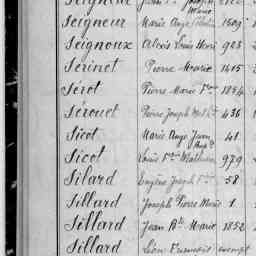 Seigneur Marie Ange
Seignoux Alexis Louis Henri 923
Serinet Pierre Marie 1415
Sérot Pierre Marie 1894
Sérouet Pierre Joseph 436
Sicot Marie Ange Jean 41
Sicot Louis Mathurin 979
Silard Eugène Joseph 58
Sillard Joseph Pierre Marie 1
Sillard Jean Bte Marie 1852
Sillard Léon François exempt